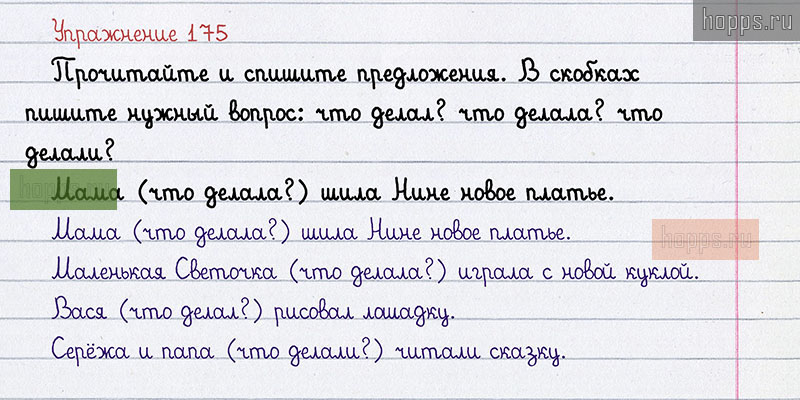 hopps.ru
Упражнение 175
Прочитайте и спишите предложения. В скобках
пишите нужный вопрос: что делал? что делала? что
делали?
Мама (что делала?) шила Нине новое платье.
Мама (что делала?) шила Нине новое платье.
hopps.ru
Маленькая Светочка (что делала?) играла с новой куклой.
Вася (что делал?) рисовал лошадку.
Серёжа и папа (что делали?) читали сказку.